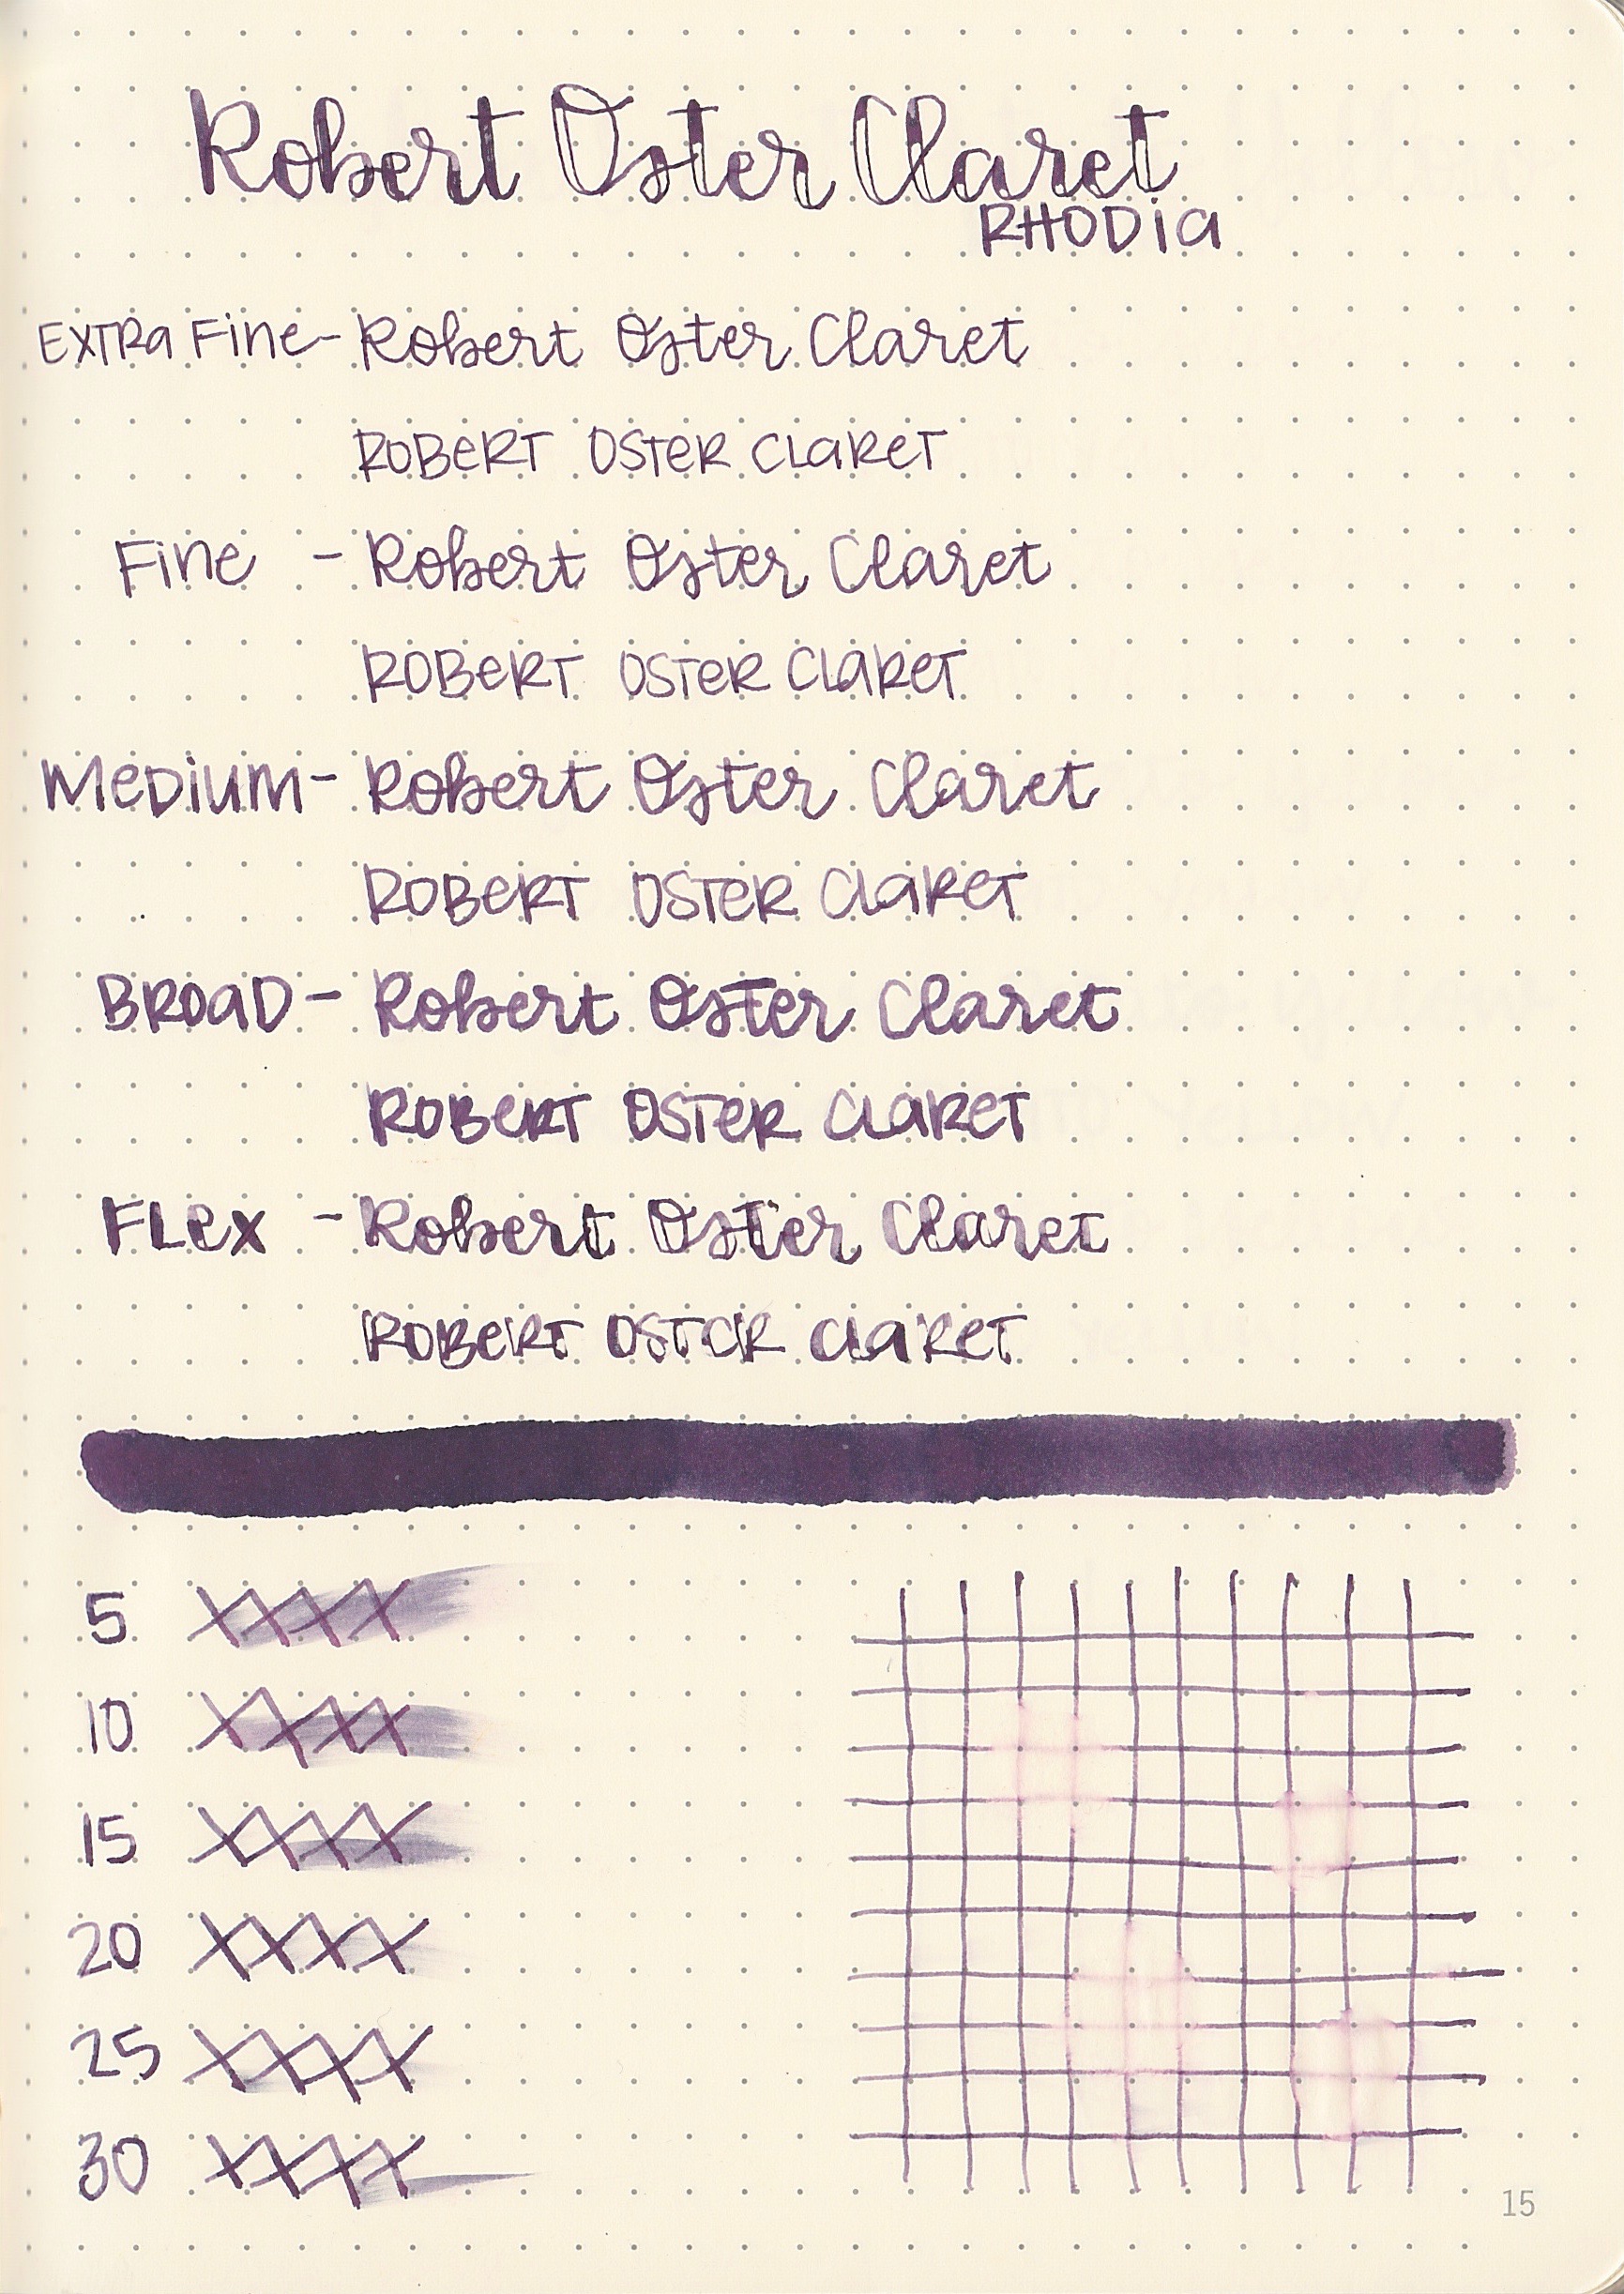 Robert Oster Claret
RHODia
EXTRa Fine - Robert Oster Claret
ROBeRT OSTeR CLaReT
Fine - Robert Oster Claret
ROBeRT OSTeR CLaReT
MeDiUM - Robert Oster Claret
ROBeRT OSTeR CLaReT
BROaD - Robert Oster Claret
ROBeRT OSTeR CLaReT
FLex - Robert Oster Claret
ROBeRT OSTeR CLaReT
5 XXXX
10 XXXX
15 XXXX
20 XXXX
25 XXXX
30 XXXX
15